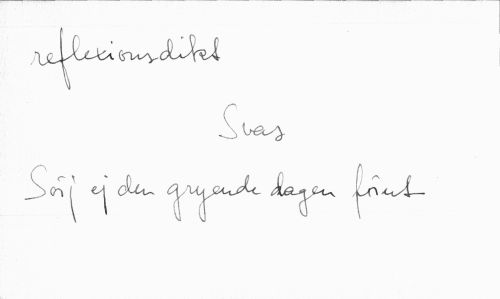 reflexionsdikt
Svas
Sörj ej den gryende dagen förut